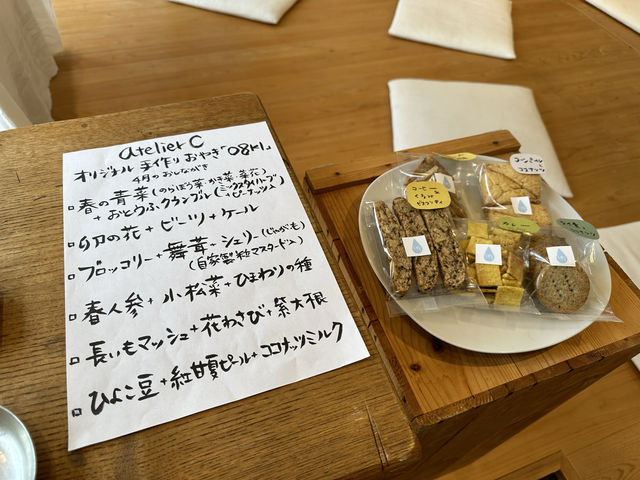 atelier C
オリジナル 手作り おやき「08 H」
4月のおしながき
□ 春の青菜 (のらぼう菜・かき菜・菜花)
+ おとうふクランブル (ミックスハーブ ピーナッツ入)
□ 卯の花 + ビーツ + ケール
□ ブロッコリー + 舞茸 + シェリー (じゃがいも)
(自家製粒マスタード入)
□ 春人参 + 小松菜 + ひまわりの種
□ 長いもマッシュ + 花わさび + 紫大根
□ ひよこ豆 + 紅甘夏ピール + ココナッツミルク
コーンミール
ココナッツ
コーヒー &
くるみ
ビスコッティ
カレー